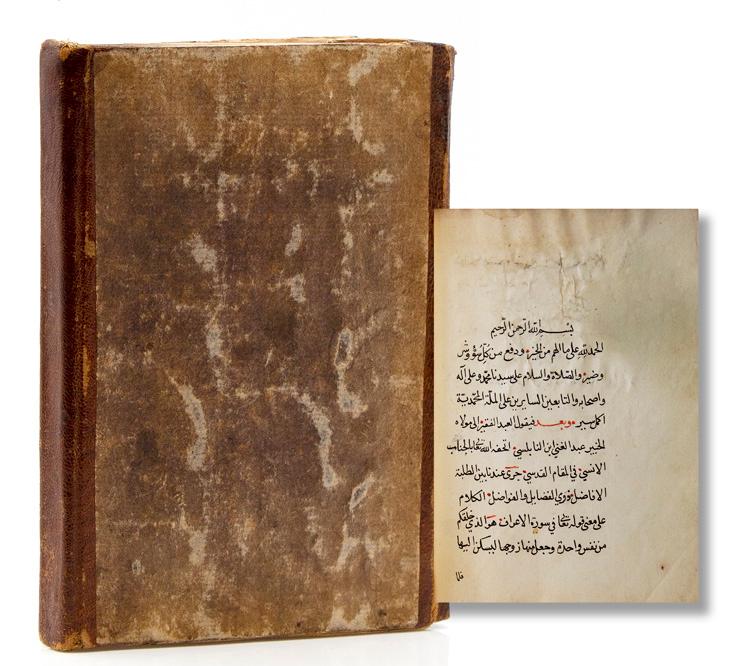 بسم الله الرحمن الرحيم
الحمد لله على ما الهم من الخير ودفع من كل سؤ وشر
وضير والصلاة والسلام على سيدنا محمد وعلى آله
واصحابه والتابعين السايرين على الملة المحمدية
اكمل سير وبعد فيقول العبد الفقير الى مولاه
الخبير عبد الغني ابن النابلسي اتحفه الله تعالى بالجناب
الانسي في المقام القدسي جرى عندنا بين الطلبة
الافاضل ذوي الفضايل والفواضل الكلام
على معنى قوله تعالى في سورة الاعراف هو الذي خلقكم
من نفس واحدة وجعل منها زوجها ليسكن اليها
فلما